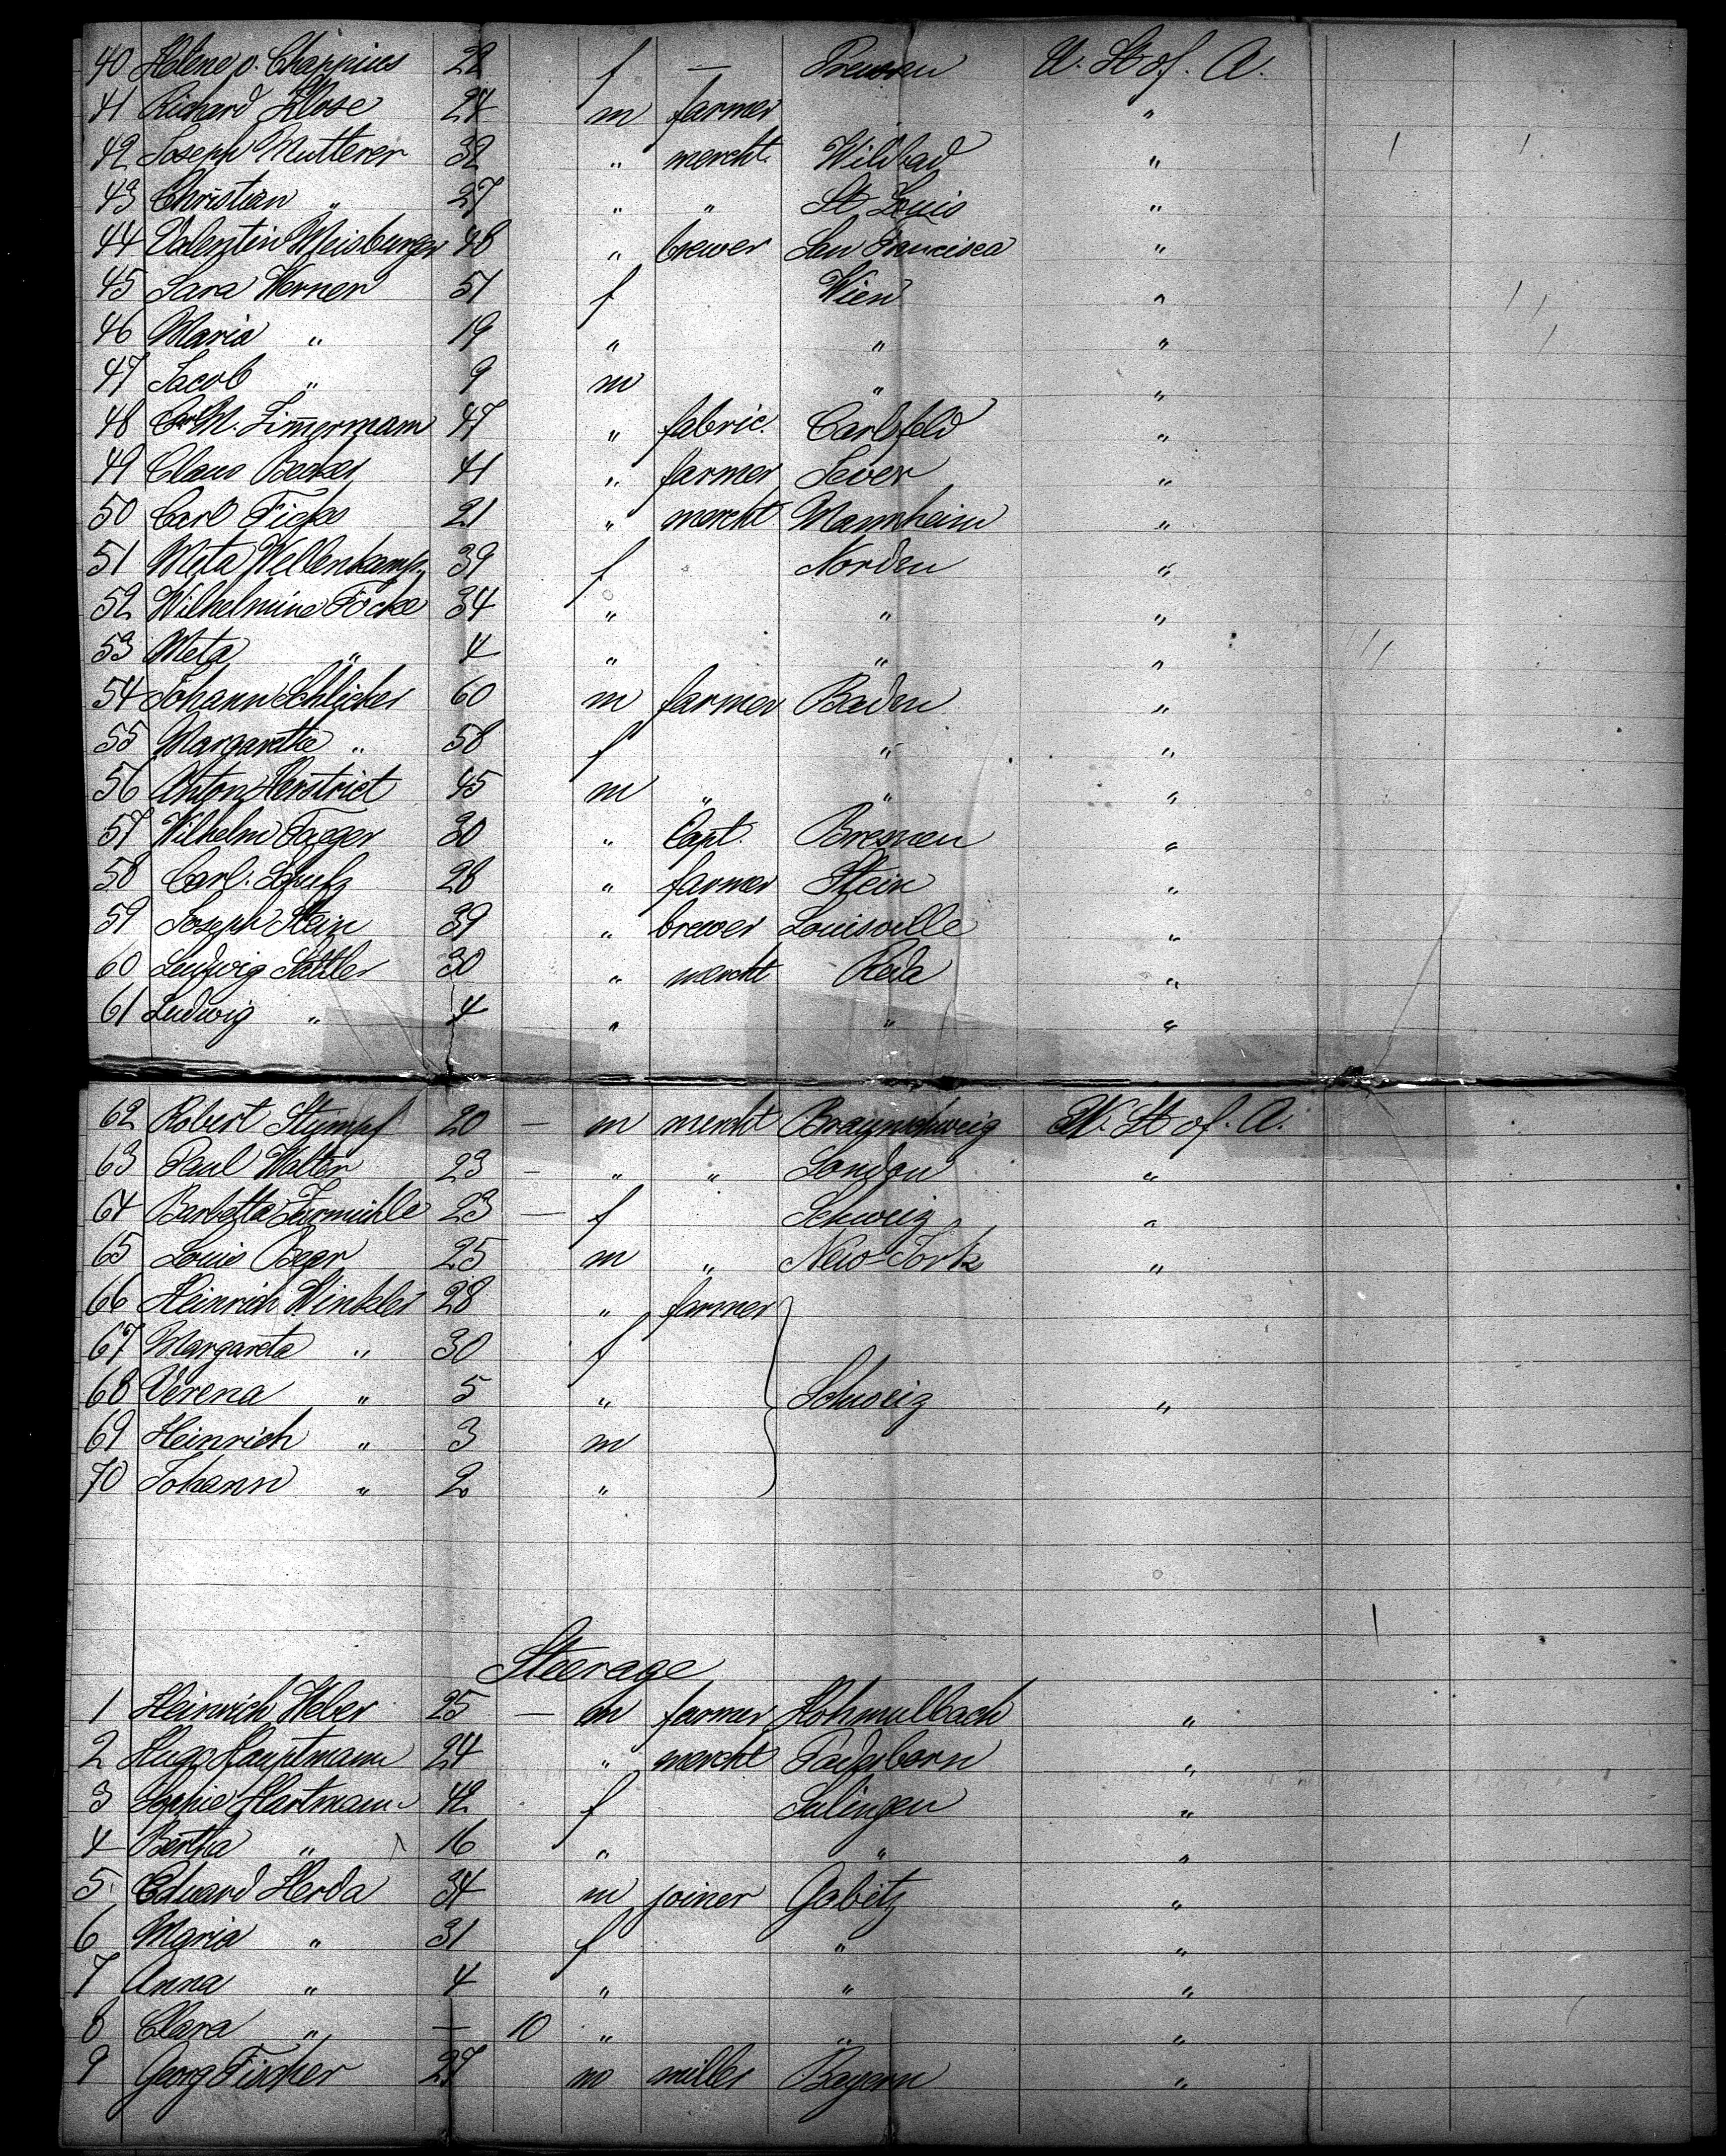 40 Helene v. Chappuis 22 f — Preussen U. St of. A.
41 Richard Klose 24 m farmer "
42 Joseph Mutterer 32 " mercht. Wildbad "
43 Christian " 27 " " St Louis "
44 Valentin Weisburger 48 " brewer San Francisca "
45 Sara Werner 51 f Wien "
46 Maria " 19 " " "
47 Jacob " 9 m " "
48 M. Zimmermann 47 " fabric. Carlsfeld "
49 Claus Becker 41 " farmer Jever "
50 Carl 21 " mercht Mannheim "
51 Meta Wellenkamp 39 f Norden "
52 Wilhelmine Focke 34 " " "
53 Meta " 4 " " "
54 Johann Schlicher 60 m farmer Baden "
55 Margarethe " 58 f " "
56 Anton Herstrict 45 m " " "
57 Wilhelm Jaeger 30 " Capt. Bremen "
58 Carl. Schulz 28 " farmer Stein "
59 Joseph Stein 39 " brewer Louisville "
60 Ludwig Sattler 30 " mercht "
61 Ludwig " 4 " " "
62 Robert Stumpf 20 — m mercht Braunschweig U. St of. A.
63 Paul Walter 23 — " " London "
64 Barbetta Zurmühle 23 — f Schweiz "
65 Louis Beer 25 m " New-York "
66 Heinrich Winkler 28 " farmer
67 Margareta " 30 f
68 Verena " 5 " Schweiz "
69 Heinrich " 3 m
70 Johann " 2 "
Steerage
1 Heinrich Weber 25 — m farmer Hohmulbach "
2 Hugo Hauptmann 24 " mercht Paderborn "
3 Sophie Hartmann 42 f Sulingen "
4 Bertha " 16 " " "
5 Eduard Herda 34 m joiner Gabitz "
6 Maria " 31 f " "
7 Anna " 4 " " "
8 Clara " — 10 " " "
9 Georg Fischer 27 m miller Bayern "